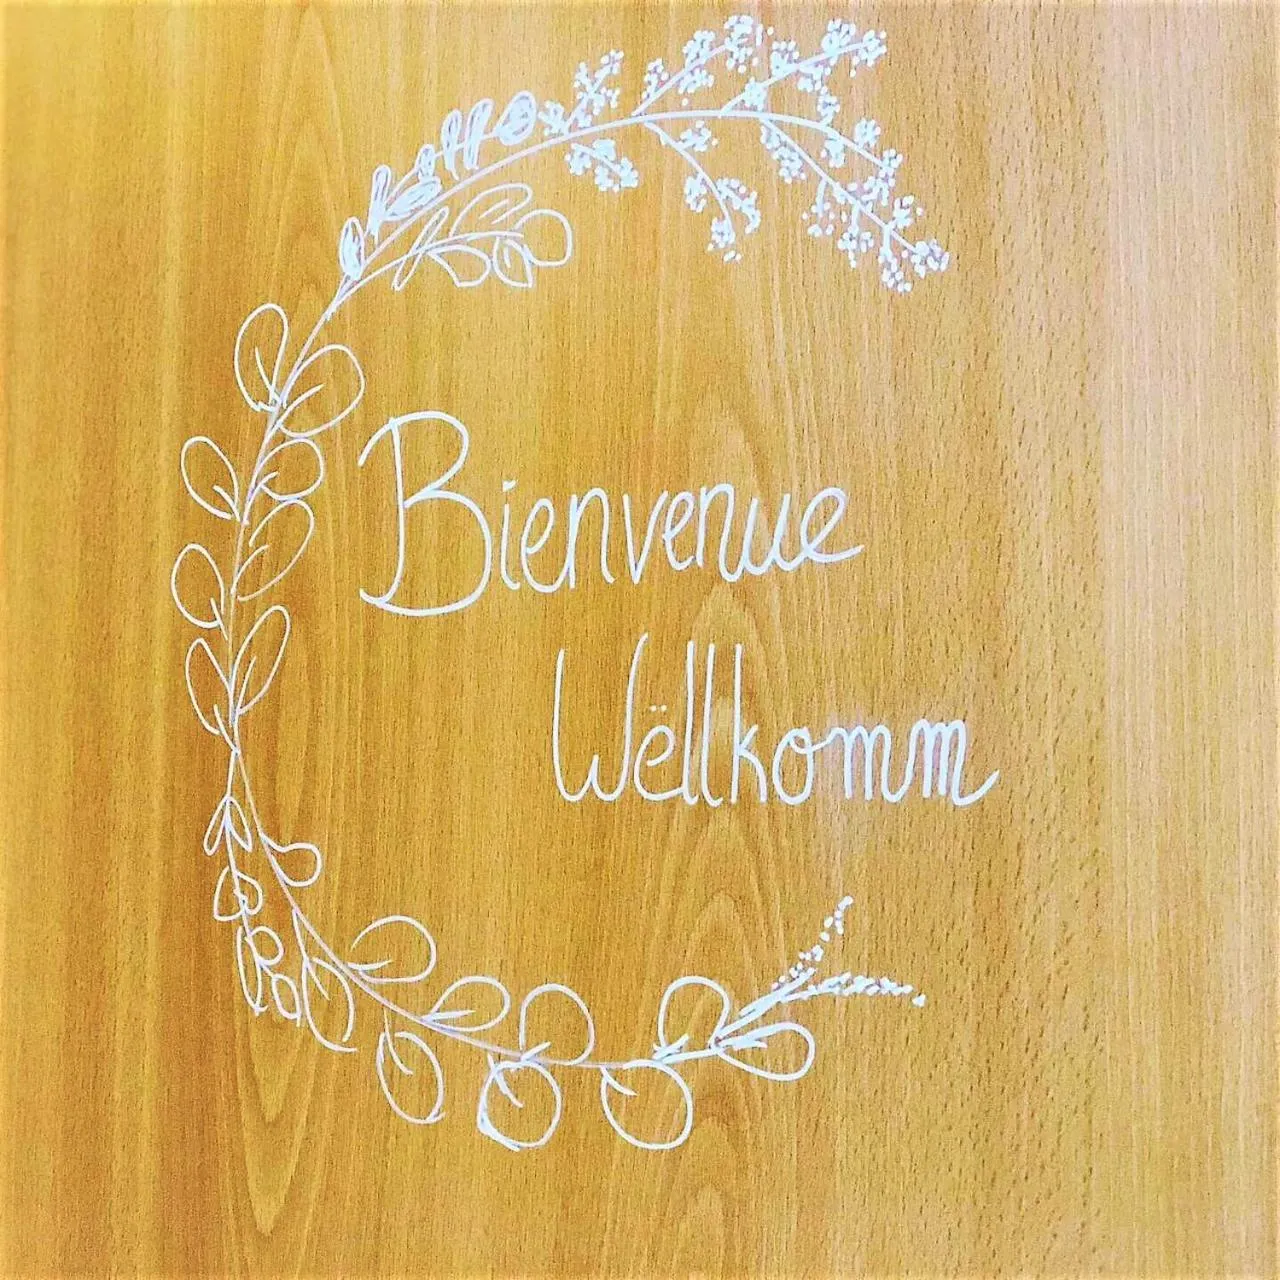 Bienvenue
Wëllkomm